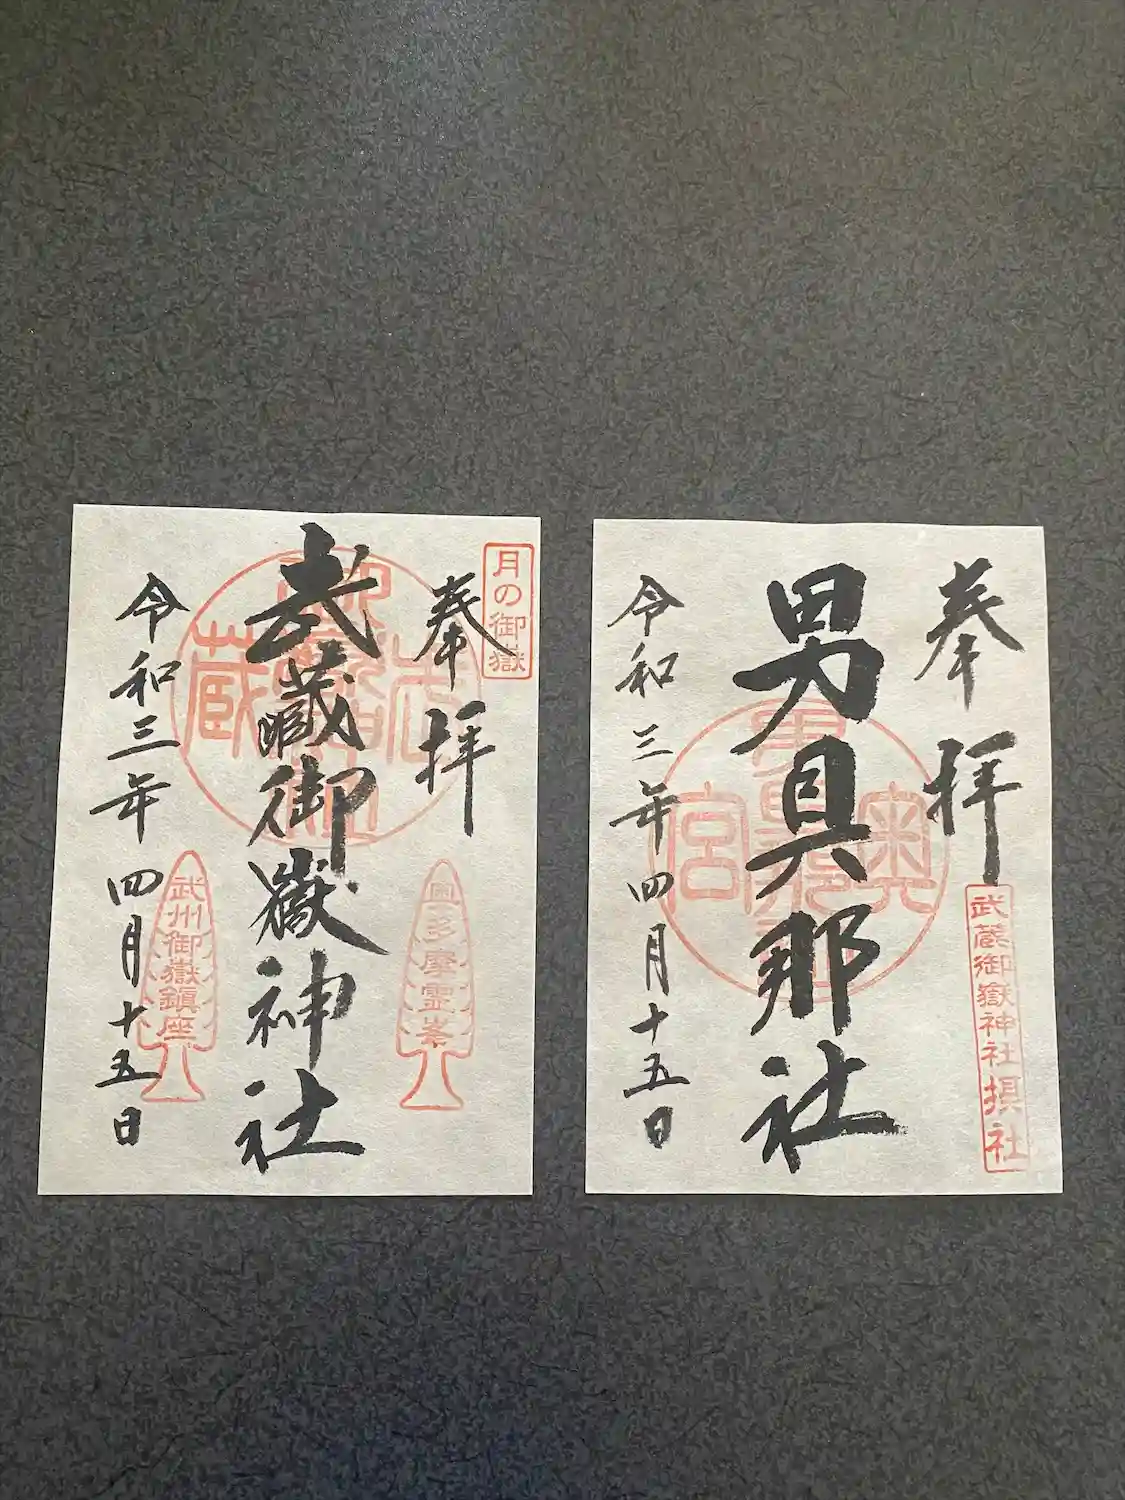 月の御嶽
奉拝
奥多摩霊峯
武蔵御嶽神社
武
蔵
武州御嶽鎮座
令和三年四月十五日
奉拝
武蔵御嶽神社摂社
男具那社
奥
宮
令和三年四月十五日